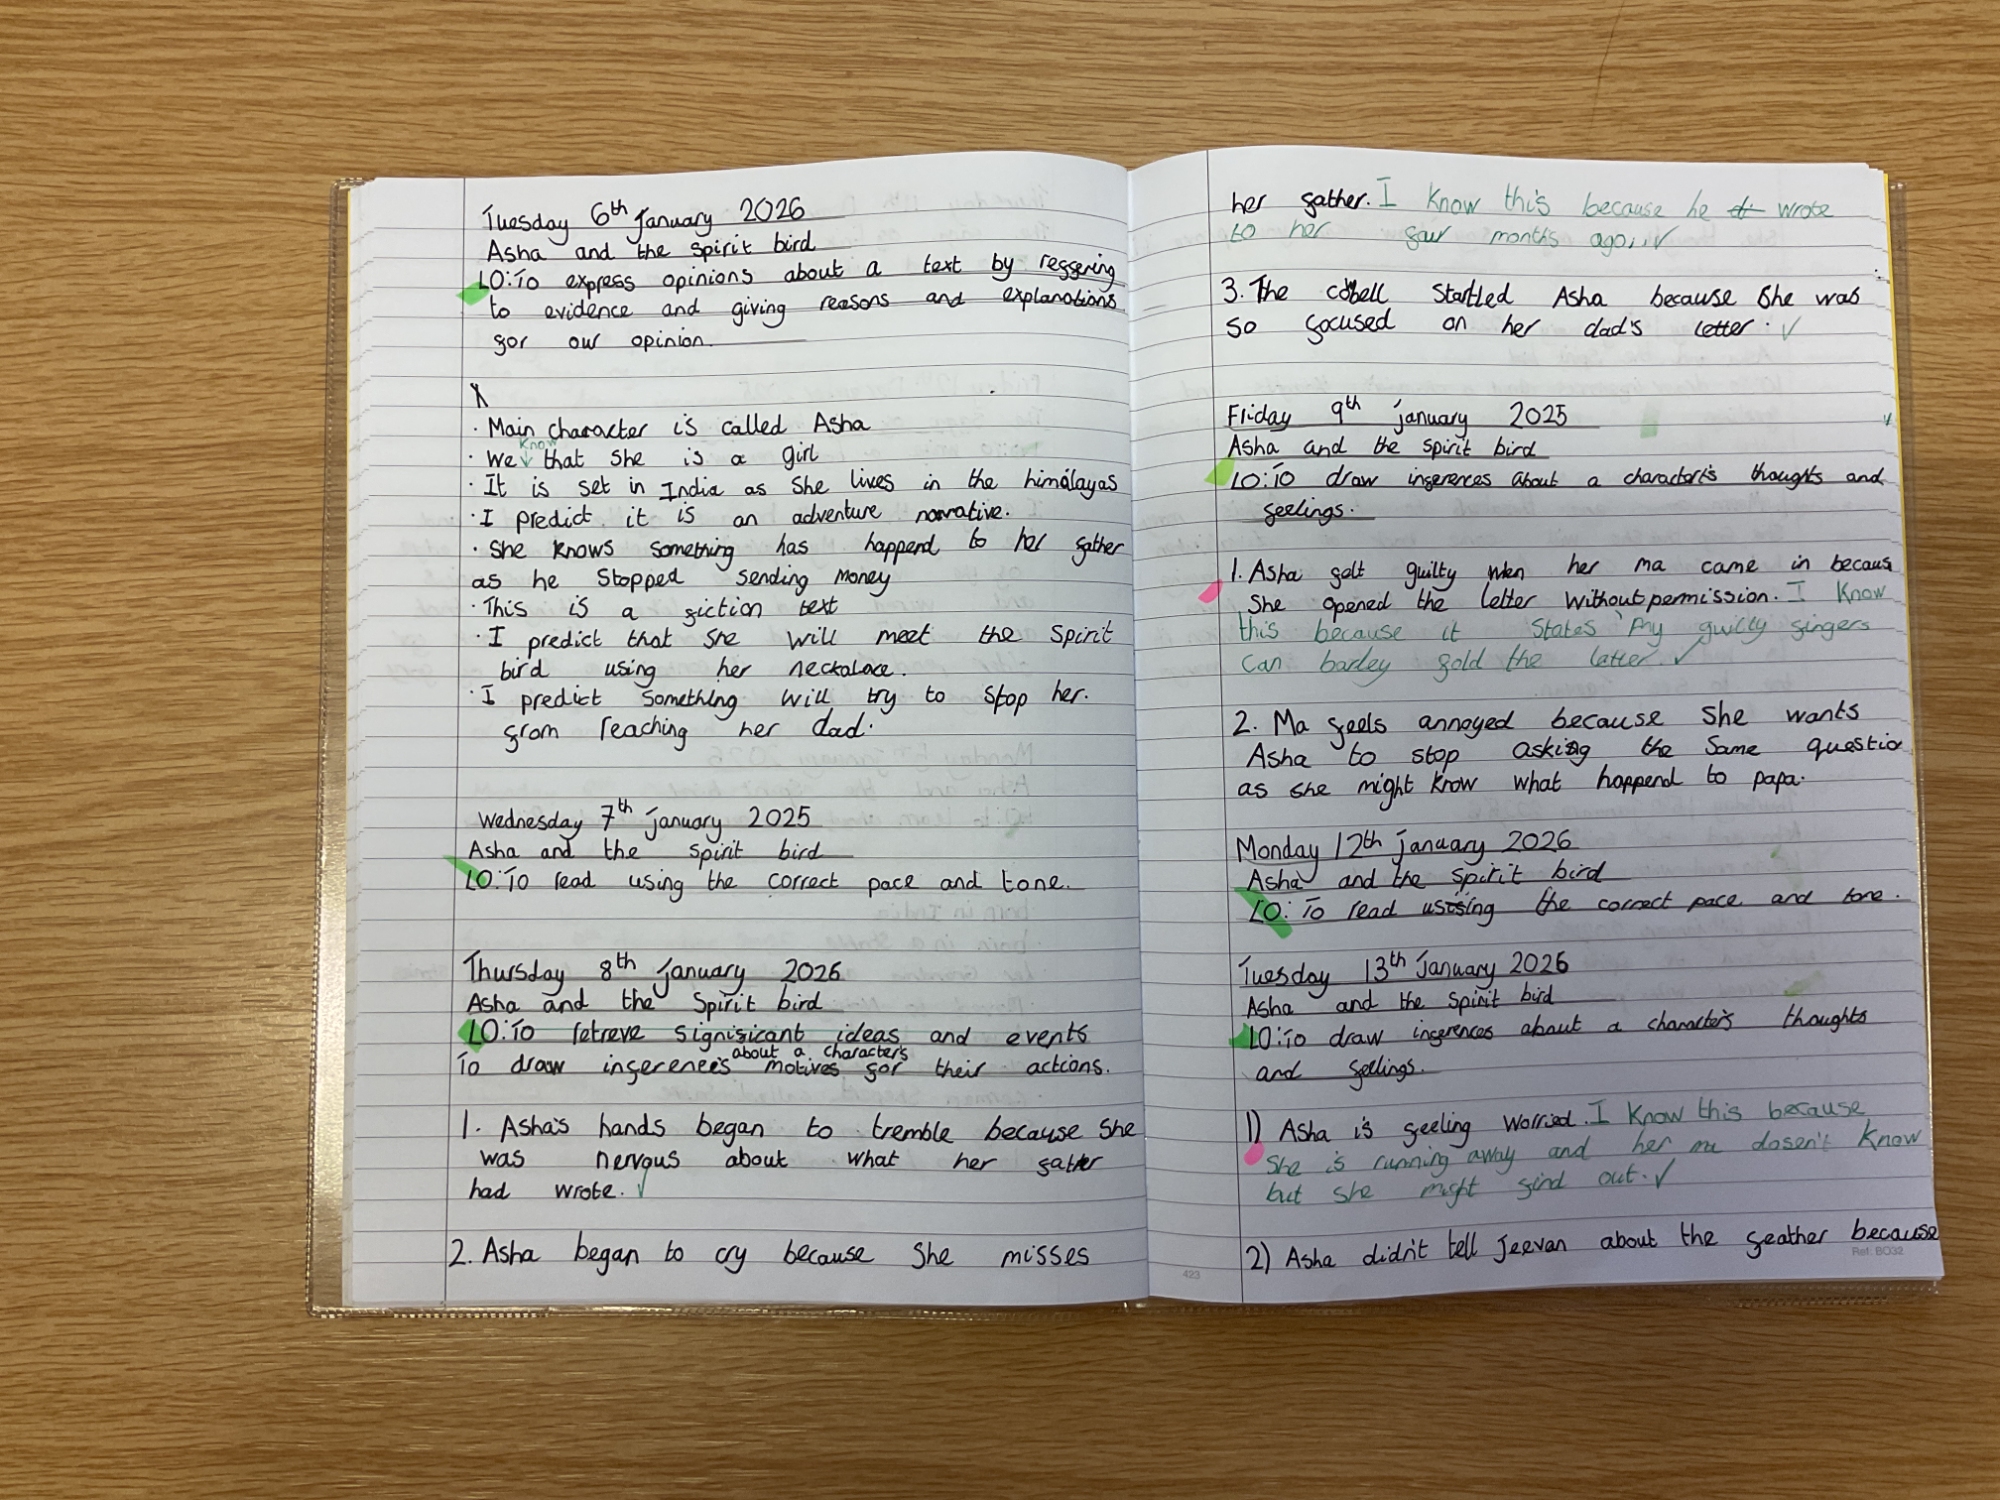 Tuesday 6th January 2026
Asha and the spirit bird
LO: To express opinions about a text by reffering
to evidence and giving reasons and explanations
for our opinion.
· Main character is called Asha
know
· We that she is a girl
· It is set in India as she lives in the himalayas
· I predict it is an adventure narrative.
· She knows something has happend to her father
as he stopped sending money
· This is a fiction text
· I predict that she will meet the spirit
bird using her neckalace.
· I predict something will try to stop her.
from reaching her dad.
Wednesday 7th January 2025
Asha and the spirit bird
LO: To read using the correct pace and tone.
Thursday 8th January 2026
Asha and the Spirit bird
LO: To retreve significant ideas and events
about a character's
To draw inferences motives for their actions.
1. Asha's hands began to tremble because she
was nervous about what her father
had wrote. ✓
2. Asha began to cry because she misses
her father. I know this because he wrote
to her four months ago. ✓
3. The cowbell startled Asha because she was
so focused on her dad's letter. ✓
Friday 9th January 2025
Asha and the spirit bird
LO: To draw inferences about a character's thoughts and
feelings.
1. Asha falt guilty when her ma came in becaus
She opened the letter without permission. I know
this because it states 'my guilty fingers
can barley fold the letter. ✓
2. Ma feels annoyed because she wants
Asha to stop asking the same questio
as she might know what happend to papa.
Monday 12th January 2026
Asha and the spirit bird
LO: To read using the correct pace and tone.
Tuesday 13th January 2026
Asha and the spirit bird
LO: To draw inferences about a character's thoughts
and feelings.
1) Asha is feeling worried. I know this because
she is running away and her ma dosen't know
but she might find out. ✓
2) Asha didn't tell Jeevan about the feather because
Ref: BO32
423